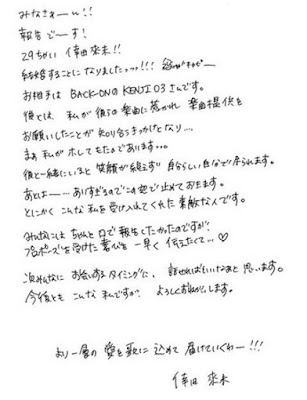 みなさぁーん!!
報告でーす!
29ちゃい 倖田來未!!
結婚することになりましたっっっ!!!
お相手は BACK-ONの KENJI03さんです。
彼とは 私が彼らの楽曲に惹かれ 楽曲提供を
お願いしたことが知り合うきっかけとなり…
まぁ 私がホレてもたのであります…。
彼と一緒にいると 笑顔が絶えず 自分らしい自分で居られます。
あとは…ありすぎるのでこの辺で止めておきます。
とにかく こんな私を受け入れてくれた素敵な人です。
みんなには ちゃんと口で報告したかったのですが
プロポーズを受けた喜びを 一早く 伝えたくて…♡
次みんなに お会いするタイミングに、 話せればいいなぁと 思います。
今後とも こんな私ですが よろしくお願いします。
より一層の 愛を歌に込めて 届けていくわー!!!
倖田 來未